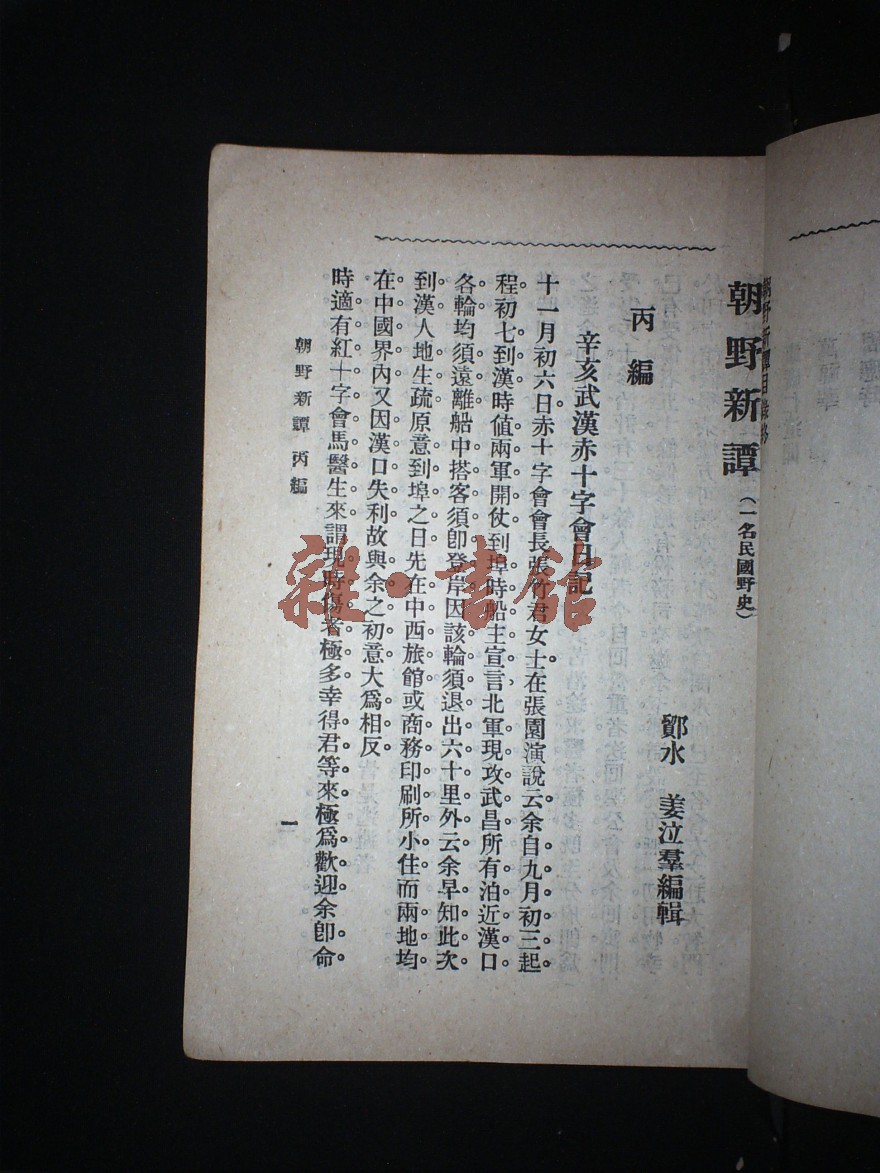 朝野新譚（一名民國野史）
鄮水　姜泣羣編輯
丙編
辛亥武漢赤十字會日記
十一月初六日赤十字會會長張竹君女士在張園演說云余自九月初三起
程初七到漢時値兩軍開仗到埠時船主宣言北軍現攻武昌所有泊近漢口
各輪均須遠離船中搭客須卽登岸因該輪須退出六十里外云余早知此次
到漢人地生疏原意到埠之日先在中西旅館或商務印刷所小住而兩地均
在中國界內又因漢口失利故與余之初意大爲相反
時適有紅十字會馬醫生來謂現時傷者極多幸得君等來極爲歡迎余卽命
朝野新譚　丙編
一
雜·書館